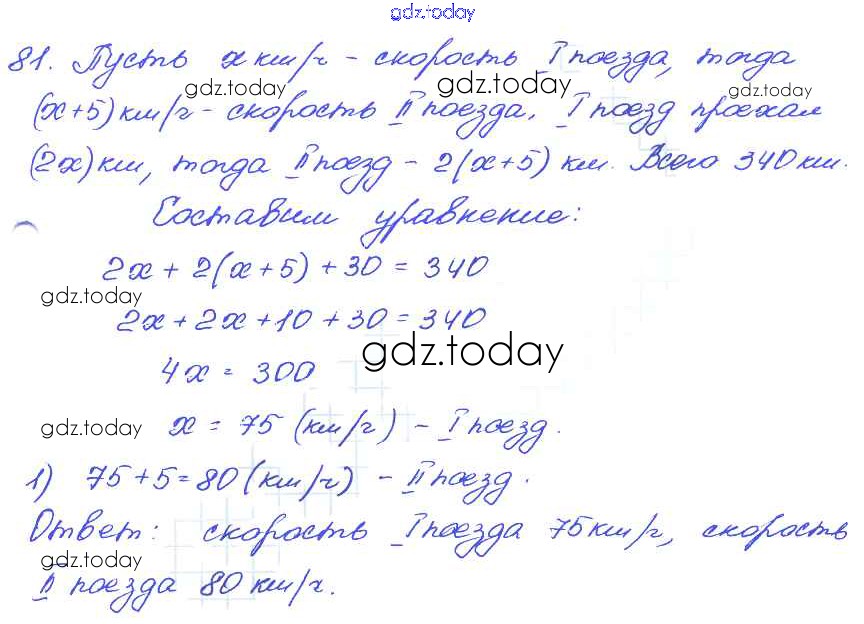 gdz.today
81. Пусть x км/ч – скорость I поезда, тогда
gdz.today gdz.today gdz.today
(x+5) км/ч – скорость II поезда. I поезд проехал
(2x) км, тогда II поезд – 2(x+5) км. Всего 340 км.
Составим уравнение:
2x + 2(x+5) + 30 = 340
gdz.today
2x + 2x + 10 + 30 = 340
gdz.today
4x = 300
gdz.today x = 75 (км/ч) – I поезд.
1) 75 + 5 = 80 (км/ч) – II поезд.
Ответ: скорость I поезда 75 км/ч, скорость
gdz.today
II поезда 80 км/ч.